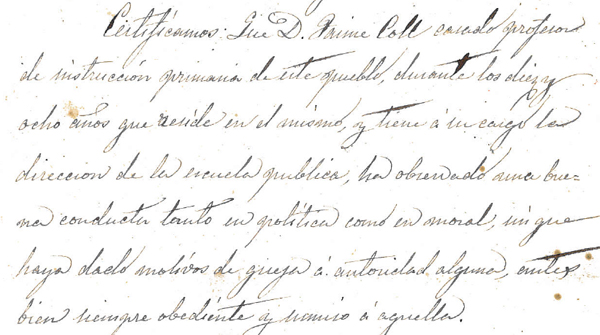 Certificamos: Que D. Jaime Coll casado profesor
de instrucción primaria de este pueblo, durante los diez y
ocho años que reside en el mismo, y tiene á su cargo la
direccion de la escuela publica, ha observado una bue=
na conducta tanto en política como en moral, sin que
haya dado motivos de queja á autoridad alguna, antes
bien siempre obediente y sumiso á aquella.